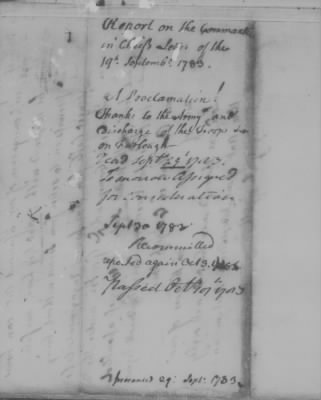 Report on the Command
in Chiefs Letter of the
19th Septembr. 1783.
A Proclamation!
thanks to the Army and
Discharge of the Troops
on Furlough
read Septr.
Tomorrow assigned
for Consideration
Sept 30
Recommitted
reported again Oct
Passed Oct
Sept. 1783